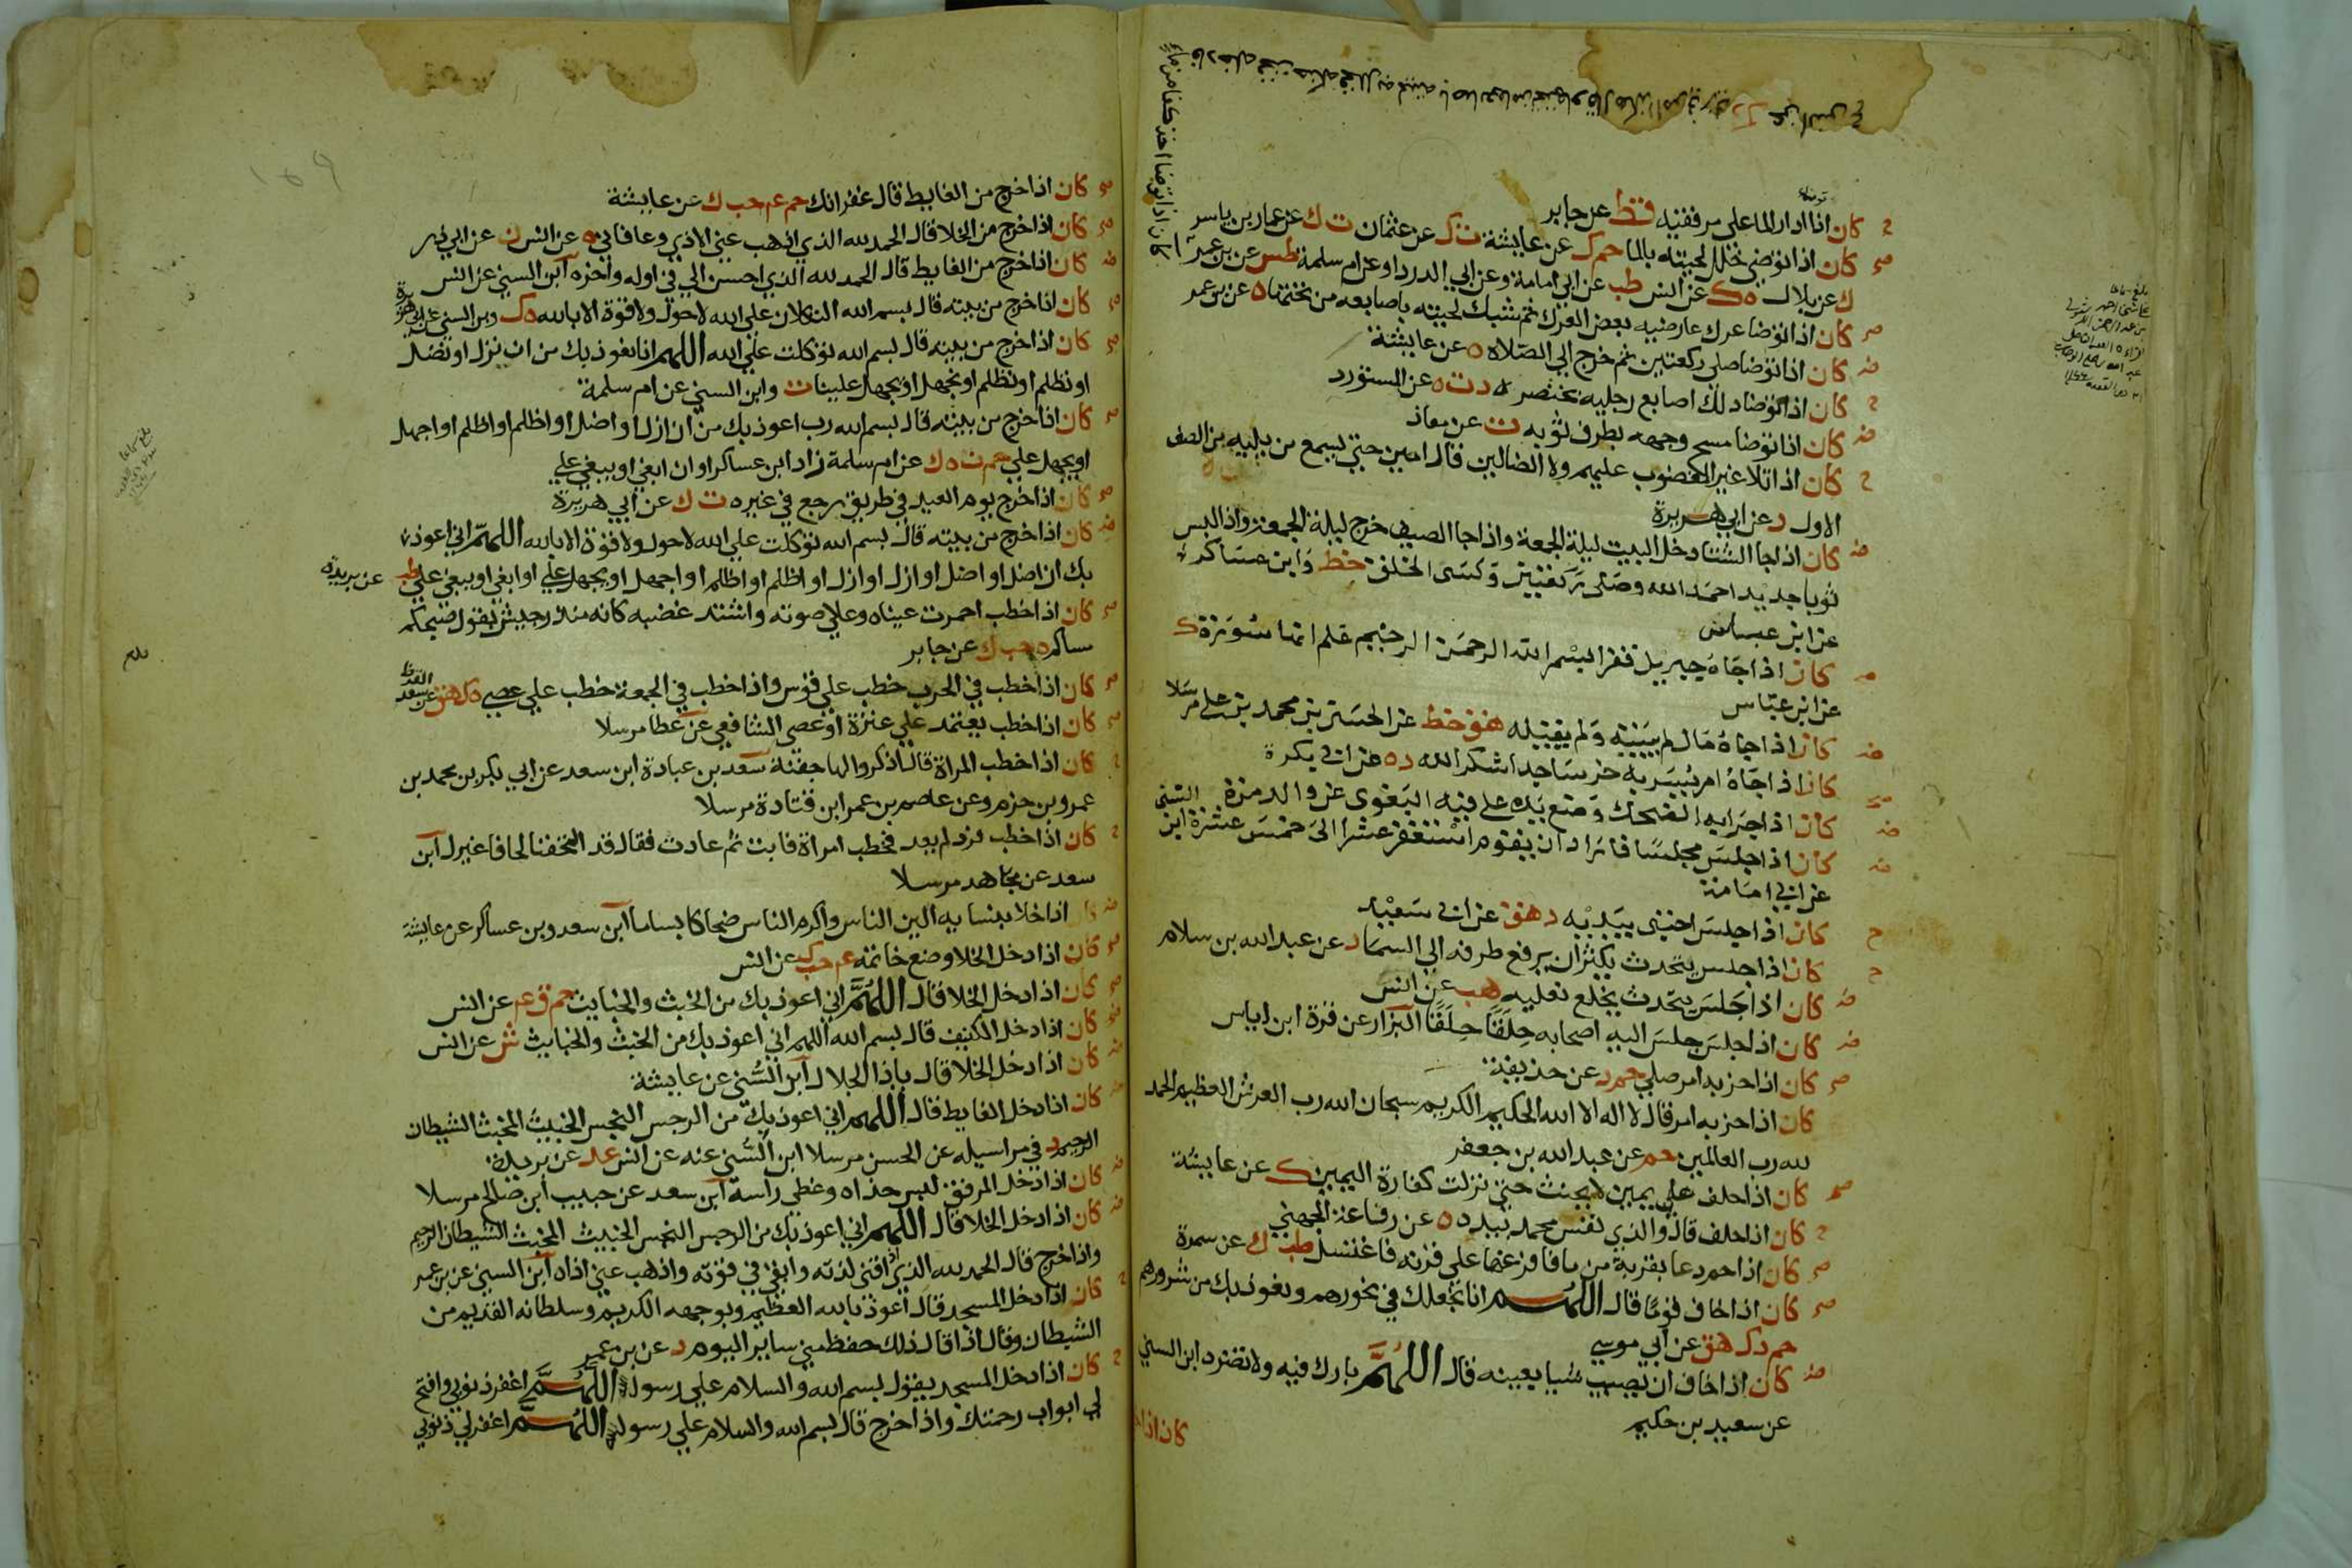 كان اذا ادار الما علي مرفقيه قط عن جابر
كان اذا توضي خلل لحيته بالما حم ك عن عايشة ت ك عن عثمان ت ك عن عمار بن ياسر
ك عن بلال ه ك عن انس طب عن ابي امامة وعن ابي الدرداء وعن ام سلمة طس عن بن عمر
كان اذا توضا عرك عارضيه بعض العرك ثم شبك لحيته باصابعه من تحتها ه عن بن عمر
كان اذا توضا صلي ركعتين ثم خرج الي الصلاة ه عن عايشة
كان اذا توضا دلك اصابع رجليه بخنصره د ت ه عن المستورد
كان اذا توضا مسح وجهه بطرف ثوبه ت عن معاذ
كان اذا تلا غير المغضوب عليهم ولا الضالين قال امين حتي يسمع من يليه من الصف
الاول د عن ابي هريرة
كان اذا جا الشتا دخل البيت ليلة الجمعة واذا جا الصيف خرج ليلة الجمعة واذا لبس
ثوبا جديدا حمد الله وصلى ركعتين وكسى الخلق خط وابن عساكر
عن ابن عباس
كان اذا جاه جبريل فقرا بسم الله الرحمن الرحيم علم انها سورة ك
عن ابن عباس
كان اذا جاه مال لم يبيته ولم يقيله هق خط عن الحسن بن محمد بن علي مرسلا
كان اذا جاه امر يسر به خر ساجدا شكرا لله د ه عن ابي بكرة
كان اذا جرا به الضحك وضع يده على فيه البغوي عن والد مرة
كان اذا جلس مجلسا فاراد ان يقوم استغفر عشرا الى خمس عشرة ابن السني
عن ابي امامة
كان اذا جلس احتبى بيديه د هق عن ابي سعيد
كان اذا جلس يتحدث يكثر ان يرفع طرفه الي السما د عن عبد الله بن سلام
كان اذا جلس يتحدث يخلع نعليه هب عن انس
كان اذا جلس جلس اليه اصحابه حلقا حلقا البزار عن قرة ابن اياس
كان اذا حزبه امر صلي حم د عن حذيفة
كان اذا حزبه امر قال لا اله الا الله الحكيم الكريم سبحان الله رب العرش العظيم الحمد
لله رب العالمين حم عن عبد الله بن جعفر
كان اذا حلف علي يمين لا يحنث حتى نزلت كفارة اليمين ك عن عايشة
كان اذا حلف قال والذي نفس محمد بيده ه عن رفاعة الجهني
كان اذا حم دعا بقربة من ما فافرغها على قرنه فاغتسل طب ك عن سمرة
كان اذا خاف قوما قال اللهم انا نجعلك في نحورهم ونعوذ بك من شرورهم
حم د ك هق عن ابي موسي
كان اذا خاف ان يصيب شيا بعينه قال اللهم بارك فيه ولا تضره ابن السني
عن سعيد بن حكيم
كان اذا
كان اذا خرج من الغايط قال غفرانك حم عم حب ك عن عايشة
كان اذا خرج من الخلا قال الحمد لله الذي اذهب عني الاذي وعافاني ه عن انس ن عن ابي ذر
كان اذا خرج من الغايط قال الحمد لله الذي احسن الي في اوله واخره ابن السني عن انس
كان اذا خرج من بيته قال بسم الله التكلان علي الله لا حول ولا قوة الا بالله ه ك وبن السني عن ابي هريرة
كان اذا خرج من بيته قال بسم الله توكلت علي الله اللهم انا نعوذ بك من ان نزل او نضل
او نظلم او نظلم او نجهل او يجهل علينا ت وابن السني عن ام سلمة
كان اذا خرج من بيته قال بسم الله رب اعوذ بك من ان ازل او اضل او اظلم او اظلم او اجهل
او يجهل علي حم ت ه ك عن ام سلمة زاد ابن عساكر او ان ابغي او يبغي علي
كان اذا خرج يوم العيد في طريق رجع في غيره ت ك عن ابي هريرة
كان اذا خرج من بيته قال بسم الله توكلت علي الله لا حول ولا قوة الا بالله اللهم اني اعوذ
بك ان اضل او اضل او ازل او ازل او اظلم او اظلم او اجهل او يجهل علي او ابغي او يبغي علي طب عن بريدة
كان اذا خطب احمرت عيناه وعلي صوته واشتد غضبه كانه منذر جيش يقول صبحكم
مساكم ه حب ك عن جابر
كان اذا خطب في الحرب خطب علي قوس واذا خطب في الجمعة خطب علي عصي ه ك هق عن سعد القرظ
كان اذا خطب يعتمد علي عنزة او عصي الشافعي عن عطا مرسلا
كان اذا خطب المراة قال اذكروا لها جفنة سعد بن عبادة ابن سعد عن ابي بكر بن محمد بن
عمرو بن حزم وعن عاصم بن عمر ابن قتادة مرسلا
كان اذا خطب فرد لم يعد فخطب امراة فابت ثم عادت فقال قد التحفنا لحافا غيرك ابن
سعد عن مجاهد مرسلا
اذا خلا بنسايه الين الناس واكرم الناس ضحاكا بساما ابن سعد وبن عساكر عن عايشة
كان اذا دخل الخلا وضع خاتمه عم حب ك عن انس
كان اذا دخل الخلا قال اللهم اني اعوذ بك من الخبث والخبايث حم ق عم عن انس
كان اذا دخل الكنيف قال بسم الله اللهم اني اعوذ بك من الخبث والخبايث ش عن انس
كان اذا دخل الخلا قال ياذا الجلال ابن السني عن عايشة
كان اذا دخل الغايط قال اللهم اني اعوذ بك من الرجس النجس الخبيث المخبث الشيطان
الرجيم د في مراسيله عن الحسن مرسلا ابن السني عنه عن انس عد عن بريدة
كان اذا دخل المرفق لبس حذاه وغطي راسه ابن سعد عن حبيب ابن صالح مرسلا
كان اذا دخل الخلا قال اللهم اني اعوذ بك من الرجس النجس الخبيث المخبث الشيطان الرجيم
واذا خرج قال الحمد لله الذي اذاقني لذته وابقي في قوته واذهب عني اذاه ابن السني عن بن عمر
كان اذا دخل المسجد قال اعوذ بالله العظيم وبوجهه الكريم وسلطانه القديم من
الشيطان وقال اذا قال ذلك حفظ مني ساير اليوم د عن بن عمر
كان اذا دخل المسجد يقول بسم الله والسلام علي رسول الله اللهم اغفر ذنوبي وافتح
لي ابواب رحمتك واذا خرج قال بسم الله والسلام علي رسول الله اللهم اغفر لي ذنوبي